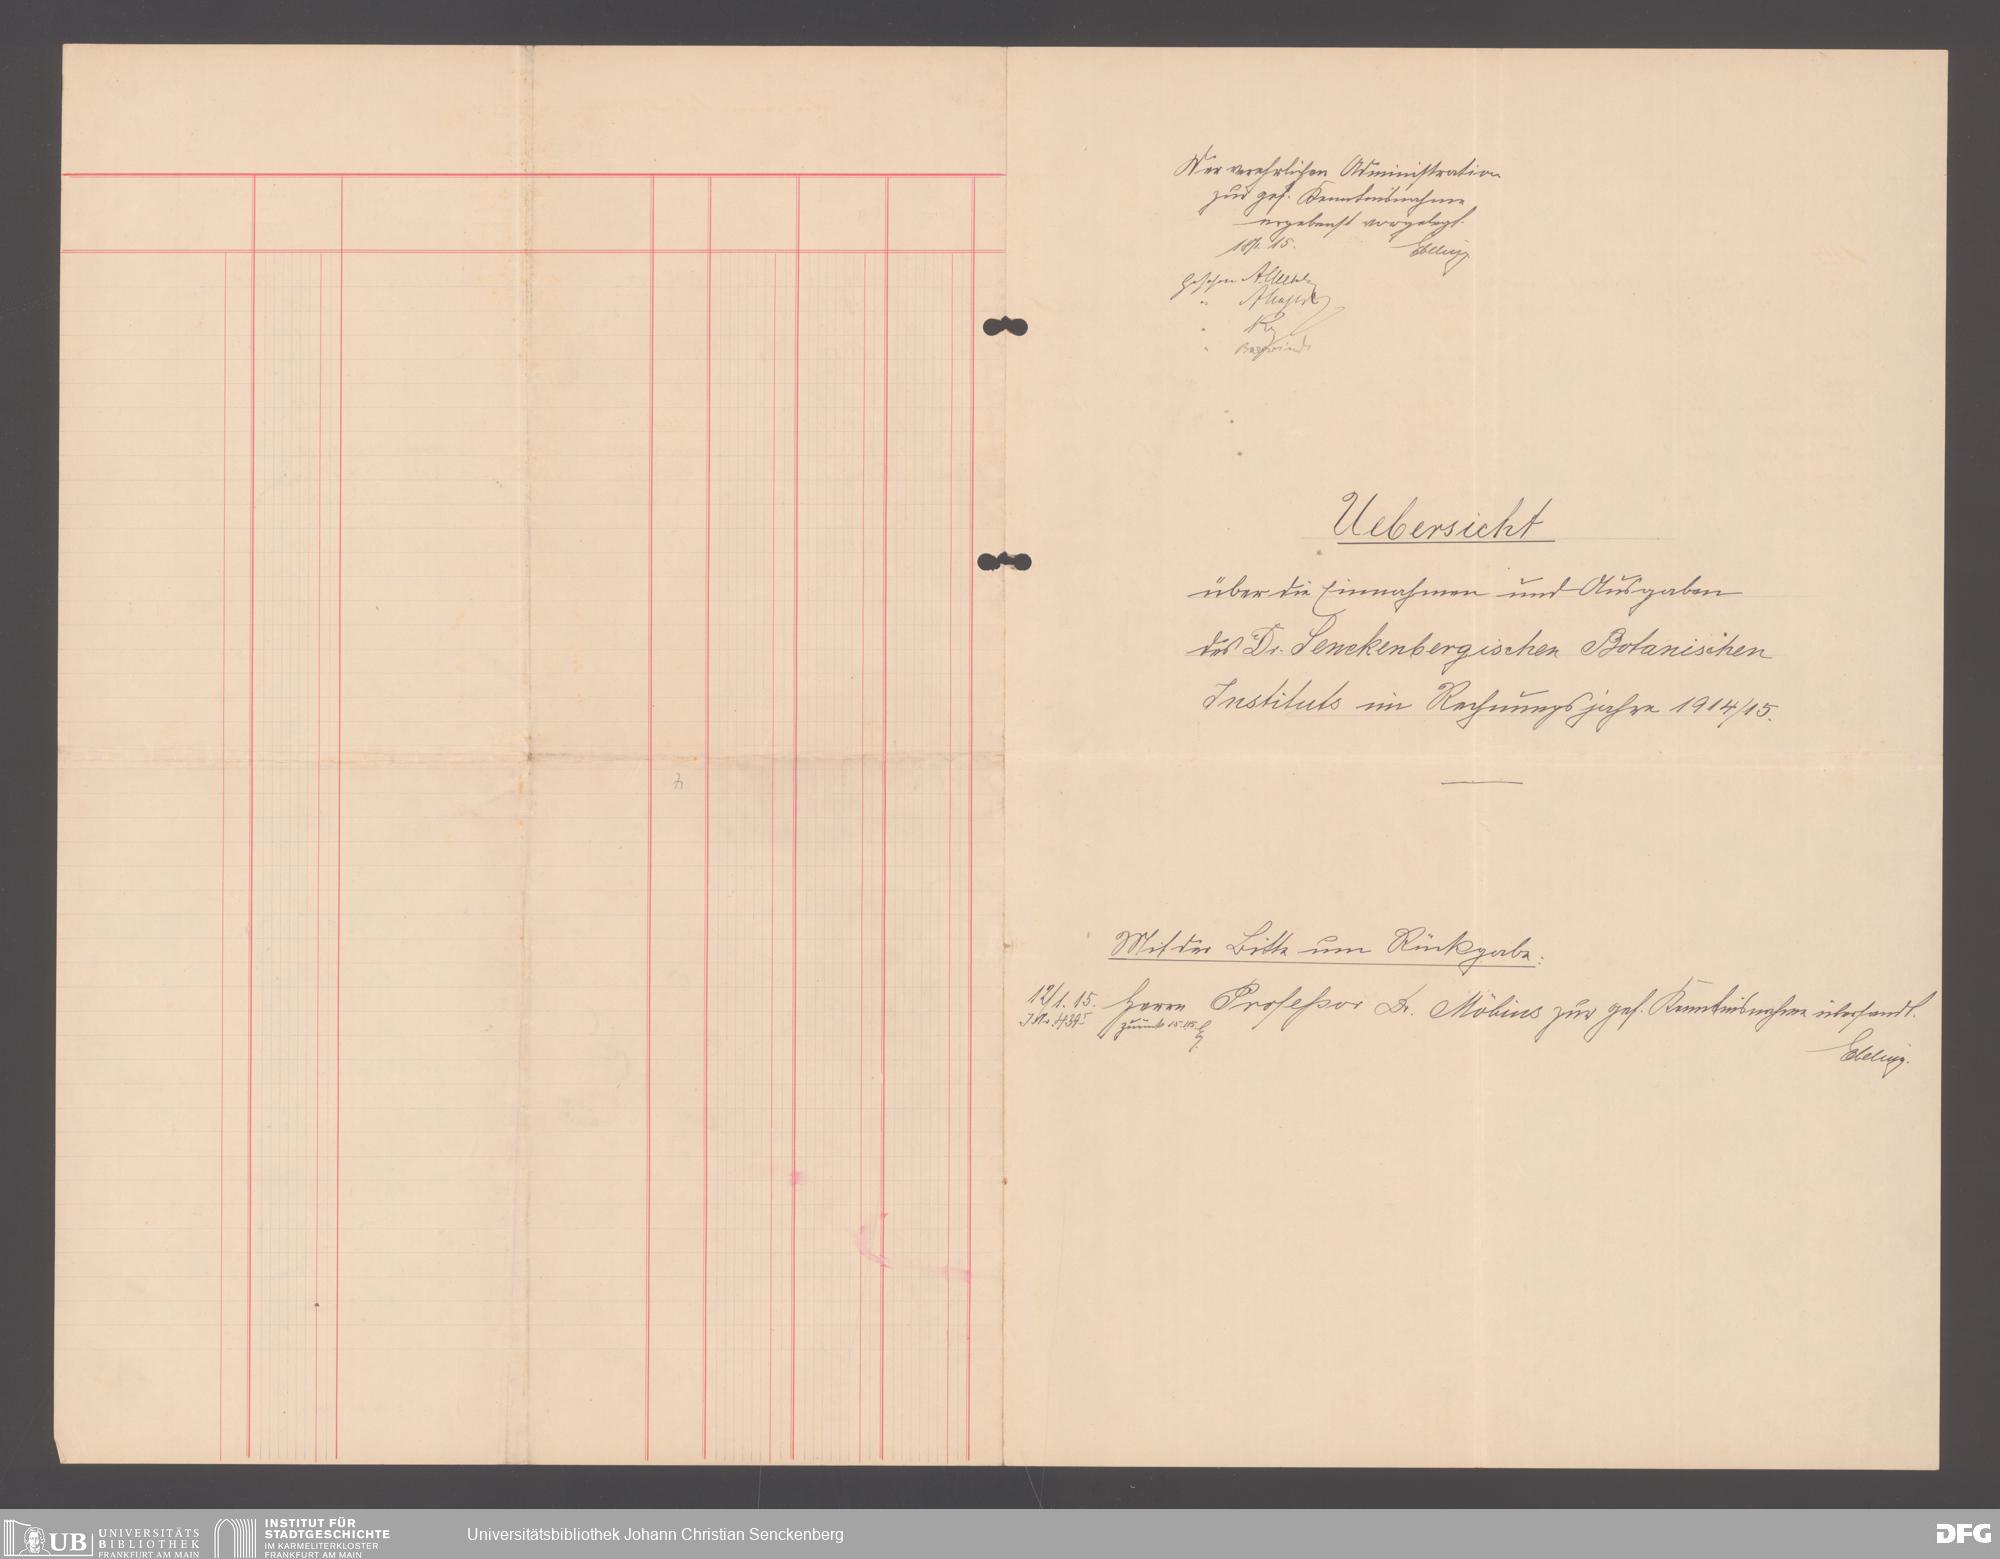 Der verehrlichen Administration
zur gef. Kenntnisnahme
ergebenst vorgelegt.
18/1. 15. Ebeling
Gesehen
"
"
"
Uebersicht
über die Einnahmen und Ausgaben
des Dr. Senckenbergischen Botanischen
Instituts im Rechnungsjahre 1914/15.
Mit der Bitte um Rückgabe.
12/1. 15. Herrn Professor Dr. Möbius zur gef. Kenntnisnahme übersandt.
J.No. 439 zurück 15.1.15.
Ebeling.
UB UNIVERSITÄTS
BIBLIOTHEK
FRANKFURT AM MAIN
INSTITUT FÜR
STADTGESCHICHTE
IM KARMELITERKLOSTER
FRANKFURT AM MAIN
Universitätsbibliothek Johann Christian Senckenberg
DFG